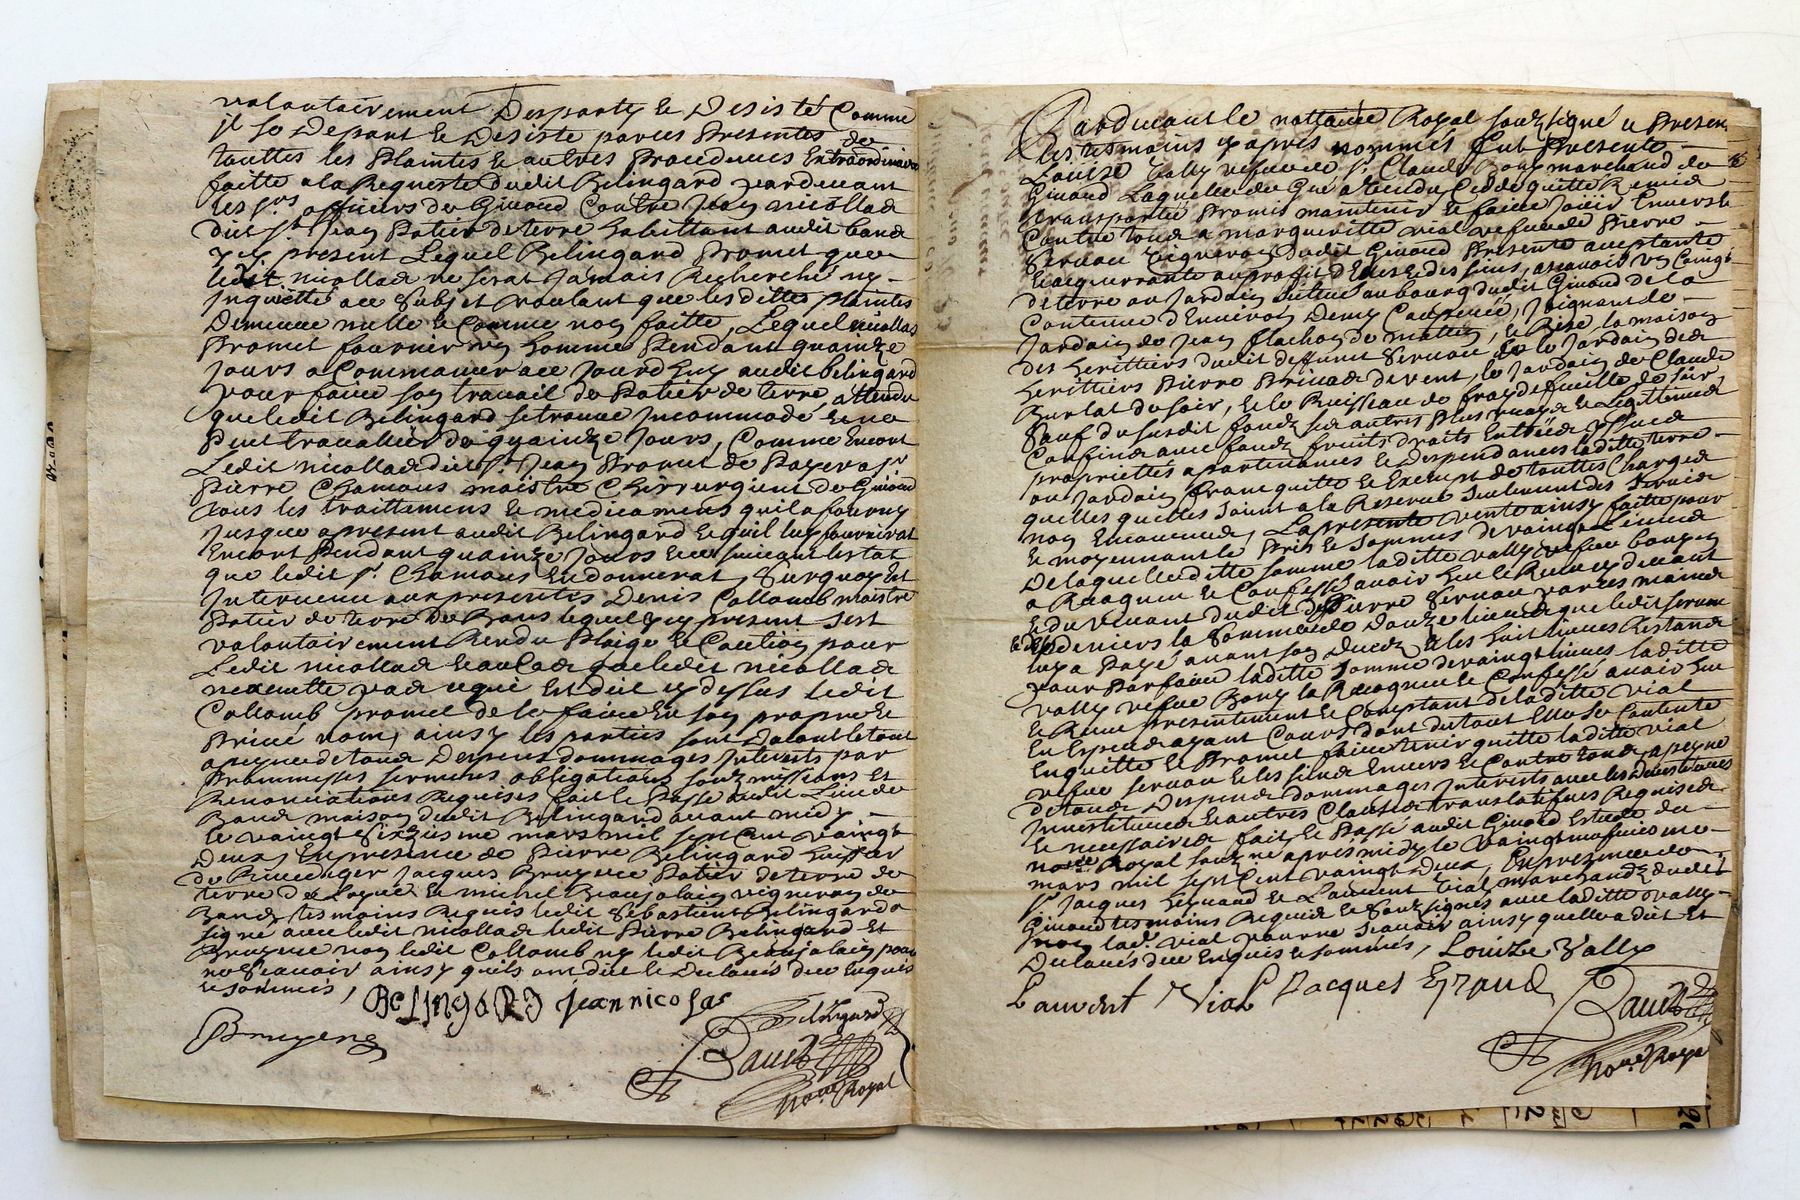 volontairement Desparty et Desisté Comme
jl se Depart et Desiste par ces Presentes de
touttes les Plaintes et autres Procedures Extraordinaires
faitte a la Requeste dudit Belingard pardevant
les srs officiers de Giraud Contre Jean nicollas
dict st Jean Potier de terre habittant audit band
y cy present Lequel Belingard Promet que
ledit nicollas ne serat Jamais Recherché ny
jnquietté au Subjet voulant que les dittes plaintes
Demeure nulle et Comme non faitte, Lequel nicollas
Promet fournir un homme Pendant quainze
jours a Commancer au jourdhuy audit belingard
pour faire son travail de Potier de terre, attendu
que ledit Belingard se trouve jncommodé et ne
Peut travailler de quainze Jours, Comme Encore
Ledit nicollas dict st Jean Promet de Payer a sr
Pierre Chamous maistre Chirurgient de Giraud
tous les traittemens et medicamens quil a fourny
Jusque a present audit Belingard et quil luy fournirat
Encore Pendant quainze Jours et ce suivant lestat
que ledit sr Chamous En donnerat, Surquoy Est
Intervenu aux presentes Denis Collomb maistre
Potier de terre de Bans lequel y cy present sest
volontairement Rendu Pleige et Caution pour
Ledit nicollas et au Cas que ledit nicollas
nexecutte pas ce qui Est dict cy dessus ledit
Collomb promet de le faire En son propre et
Privé nom, ainsy les parties sont Dacord le tout
a peyne de tous Despens dommages Interests par
Prommesses sermens obligations soubzmissions Et
Renonciations Requises fait et Passé audit Lieu de
Band maison dudit Belingard avant midy
le vaingt Sixziesme mars mil sept Cent vaingt
Deux, En presence de Pierre Belingard huissier
de Jacques Bruyere Potier de terre de
terre de et michel Beaujolain vigneron de
Band tesmoins Requis ledit Sebastient Belingard a
signé avec ledit nicollas ledit Pierre Belingard Et
Bruyere non ledit Collomb ny ledit Beaujolain pour
ne Scavoir ainsy quils ont dict et Declarés deue Enquis
et sommés,
BeLINgARD jean nicolas
Belingard
Bruyere
David
nore Royal
Pardevant le nottaire Royal soubzsigné et Presens
les tesmoins cy apres nommés fut Presente
Louize Vally vefve de sr Claude Bouy marchand de
Giraud Laquelle de Gré a vendu Cedde quitte Remis
transporté Promis maintenir et faire Jouir Envers et
Contre tous a margueritte vial vefve de Pierre
Servau vigneron dudit Giraud Presente acceptante
et acquerante au profit delle et des siens, ascavoir un Coingt
de terre ou Jardain scitué au bourg dudit Giraud de la
Contenue d'Environ Demy Coupenée, Joignant le
Jardain de Jean flachon de mattin, et Bize la maison
des herittiers dudit deffunt Servau et le Jardain des
herittiers Pierre de vent, le Jardain de Claude
Burlat du soir, et le Ruisseau de
Sauf du susdit fondz ses autres Plus vrays et Legittimes
Confins avec fondz fruits droits Entrées yssues
propriettes apartenances et Despendances ladite terre
ou Jardain franc quitte et Exempt de touttes Charges
quelles quelles soient a la Reserve Seulement des Servis
non Encourus, La presente vente ainsy faitte pour
et moyennant le Pris et Sommes de vaingt Livres
De laquelle ditte somme laditte vally vefve bouy en
a Recogneu et Confessé avoir heu et Receu cy devant
et du vivant dudit Pierre Servau par ses mains
et deniers la Somme de douze livres que ledit servau
luy a Payé avant son Deces et les huit livres Restans
pour Parfaire laditte Somme de vaingt livres laditte
vally vefve Bouy la Recogneu et Confessé avoir heu
et Receu presentement et Comptant de laditte vial
En Especes ayant Cours dont du tout Elle se Contente
Enquitte et Promet faire tenir quitte laditte vial
vefve servau et les siens Envers et Contre tous, a peyne
de tous Despens dommages Interests avec les Devestitures
Investitures et autres Clauses translatifves Requises
et necessaires fait et Passé audit Giraud Estude du
nore Royal soubzné après midy le vaingt
mars mil sept Cent vaingt Deux, En presence de
sr Jacques Eyraud et Laurent Vial marchands dudit
Giraud tesmoins Requis et Soubzsignés avec laditte vally
non lade vial pour ne Scavoir ainsy quelle a dict Et
Declarés deue Enquis et sommés, Louize Vally
Laurent Vial Jacques Eyraud
David
nore Royal